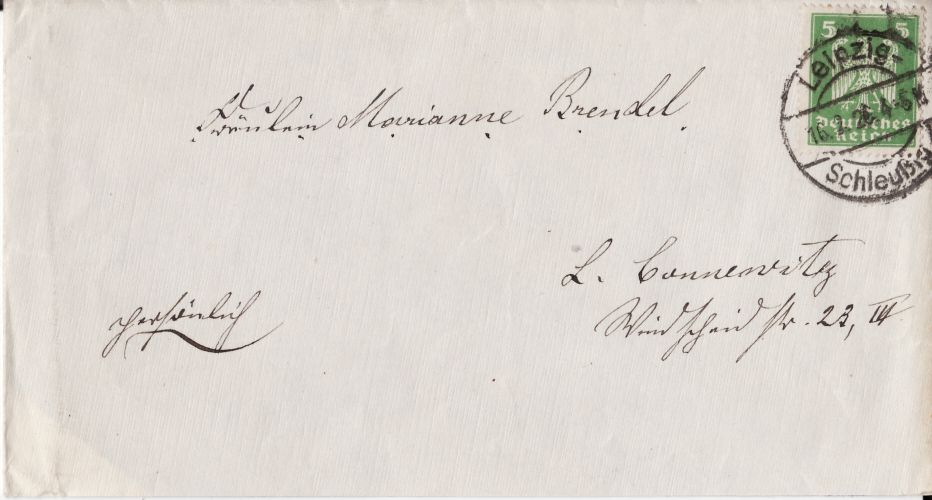 5 5
Leipzig-
16.2. 4-5 N
Deutsches
Reich
Schleußig
Fräulein Marianne Brendel.
L. Connewitz
Windscheidstr. 23, III
persönlich